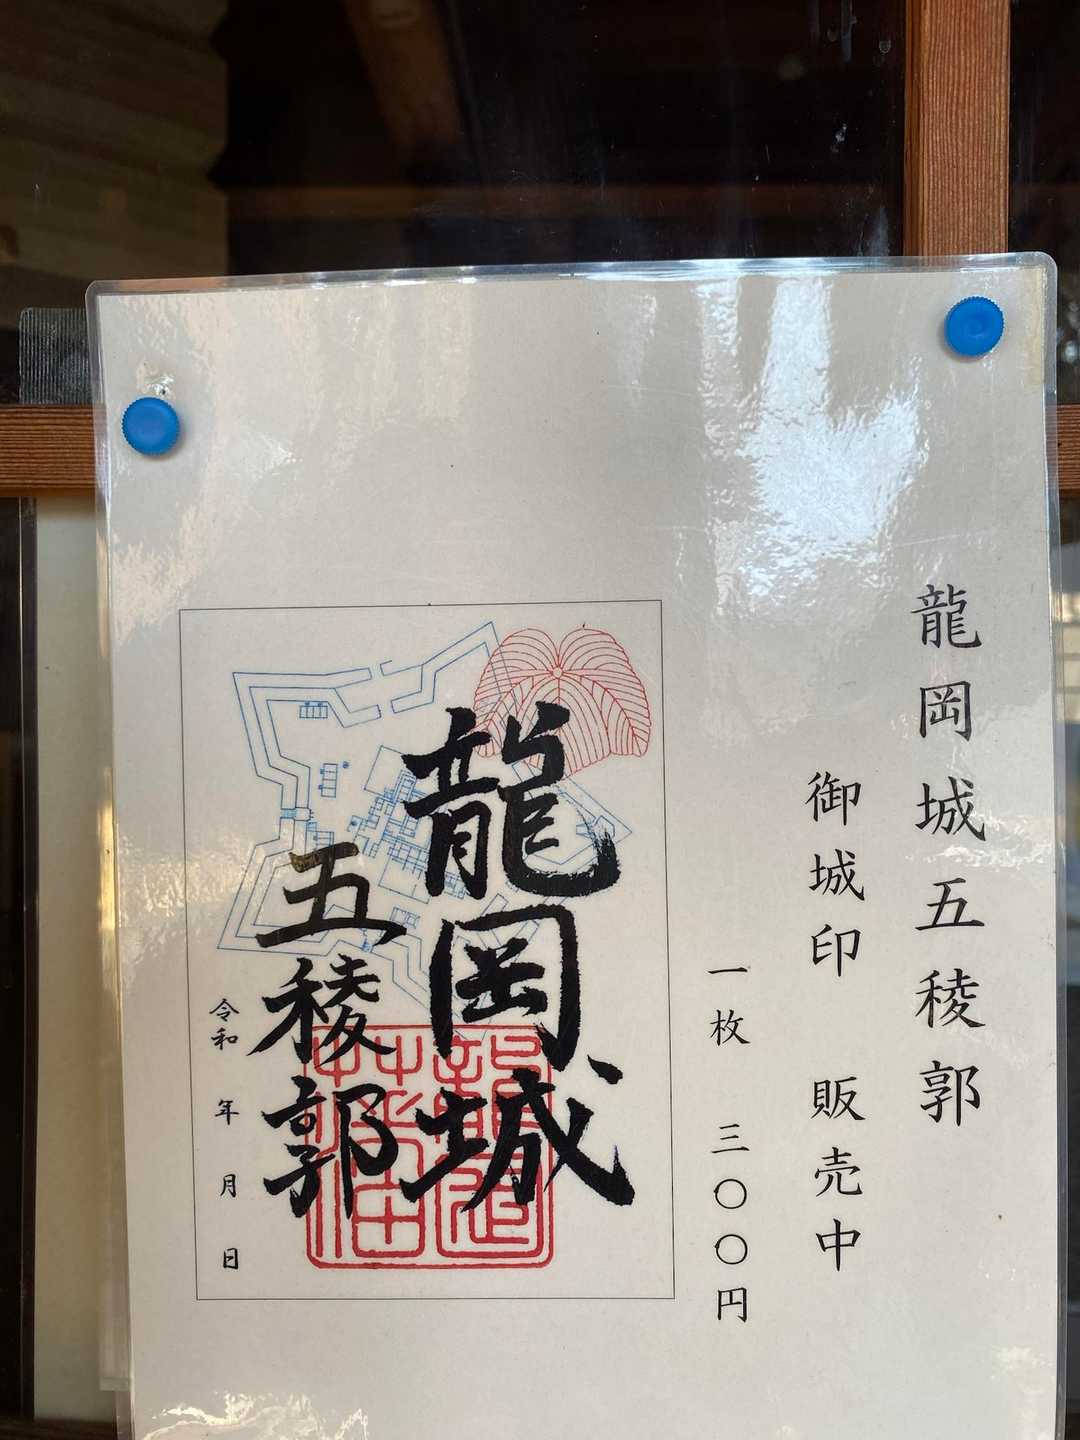 龍岡城五稜郭
御城印 販売中
一枚 三〇〇円
龍岡城
五稜郭
令和 年 月 日